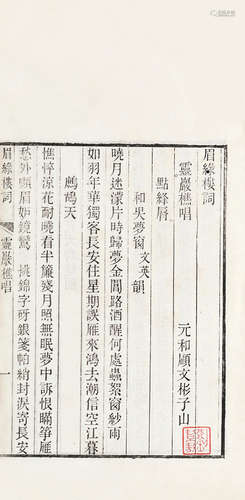 眉綠樓詞
靈巖樵唱
元和顧文彬子山
點絳脣
和吳夢窗文英韻
曉月迷濛片時歸夢金閶路酒醒何處蟲絮窗紗雨
如羽年華獨客長安住星期誤雁來鴻去潮信空江暮
鷓鴣天
憔悴涼花耐曉看半簾殘月照無眠夢中訴恨瞞箏雁
愁外顰眉妬鏡鸞 挑錦字砑銀箋帕綃封淚寄長安
眉綠樓詞
靈巖樵唱
一